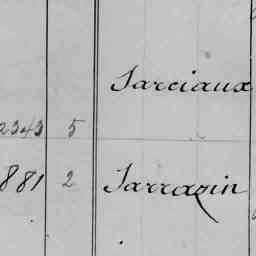 Sarciaux
2343 5
881 2 Sarrazin